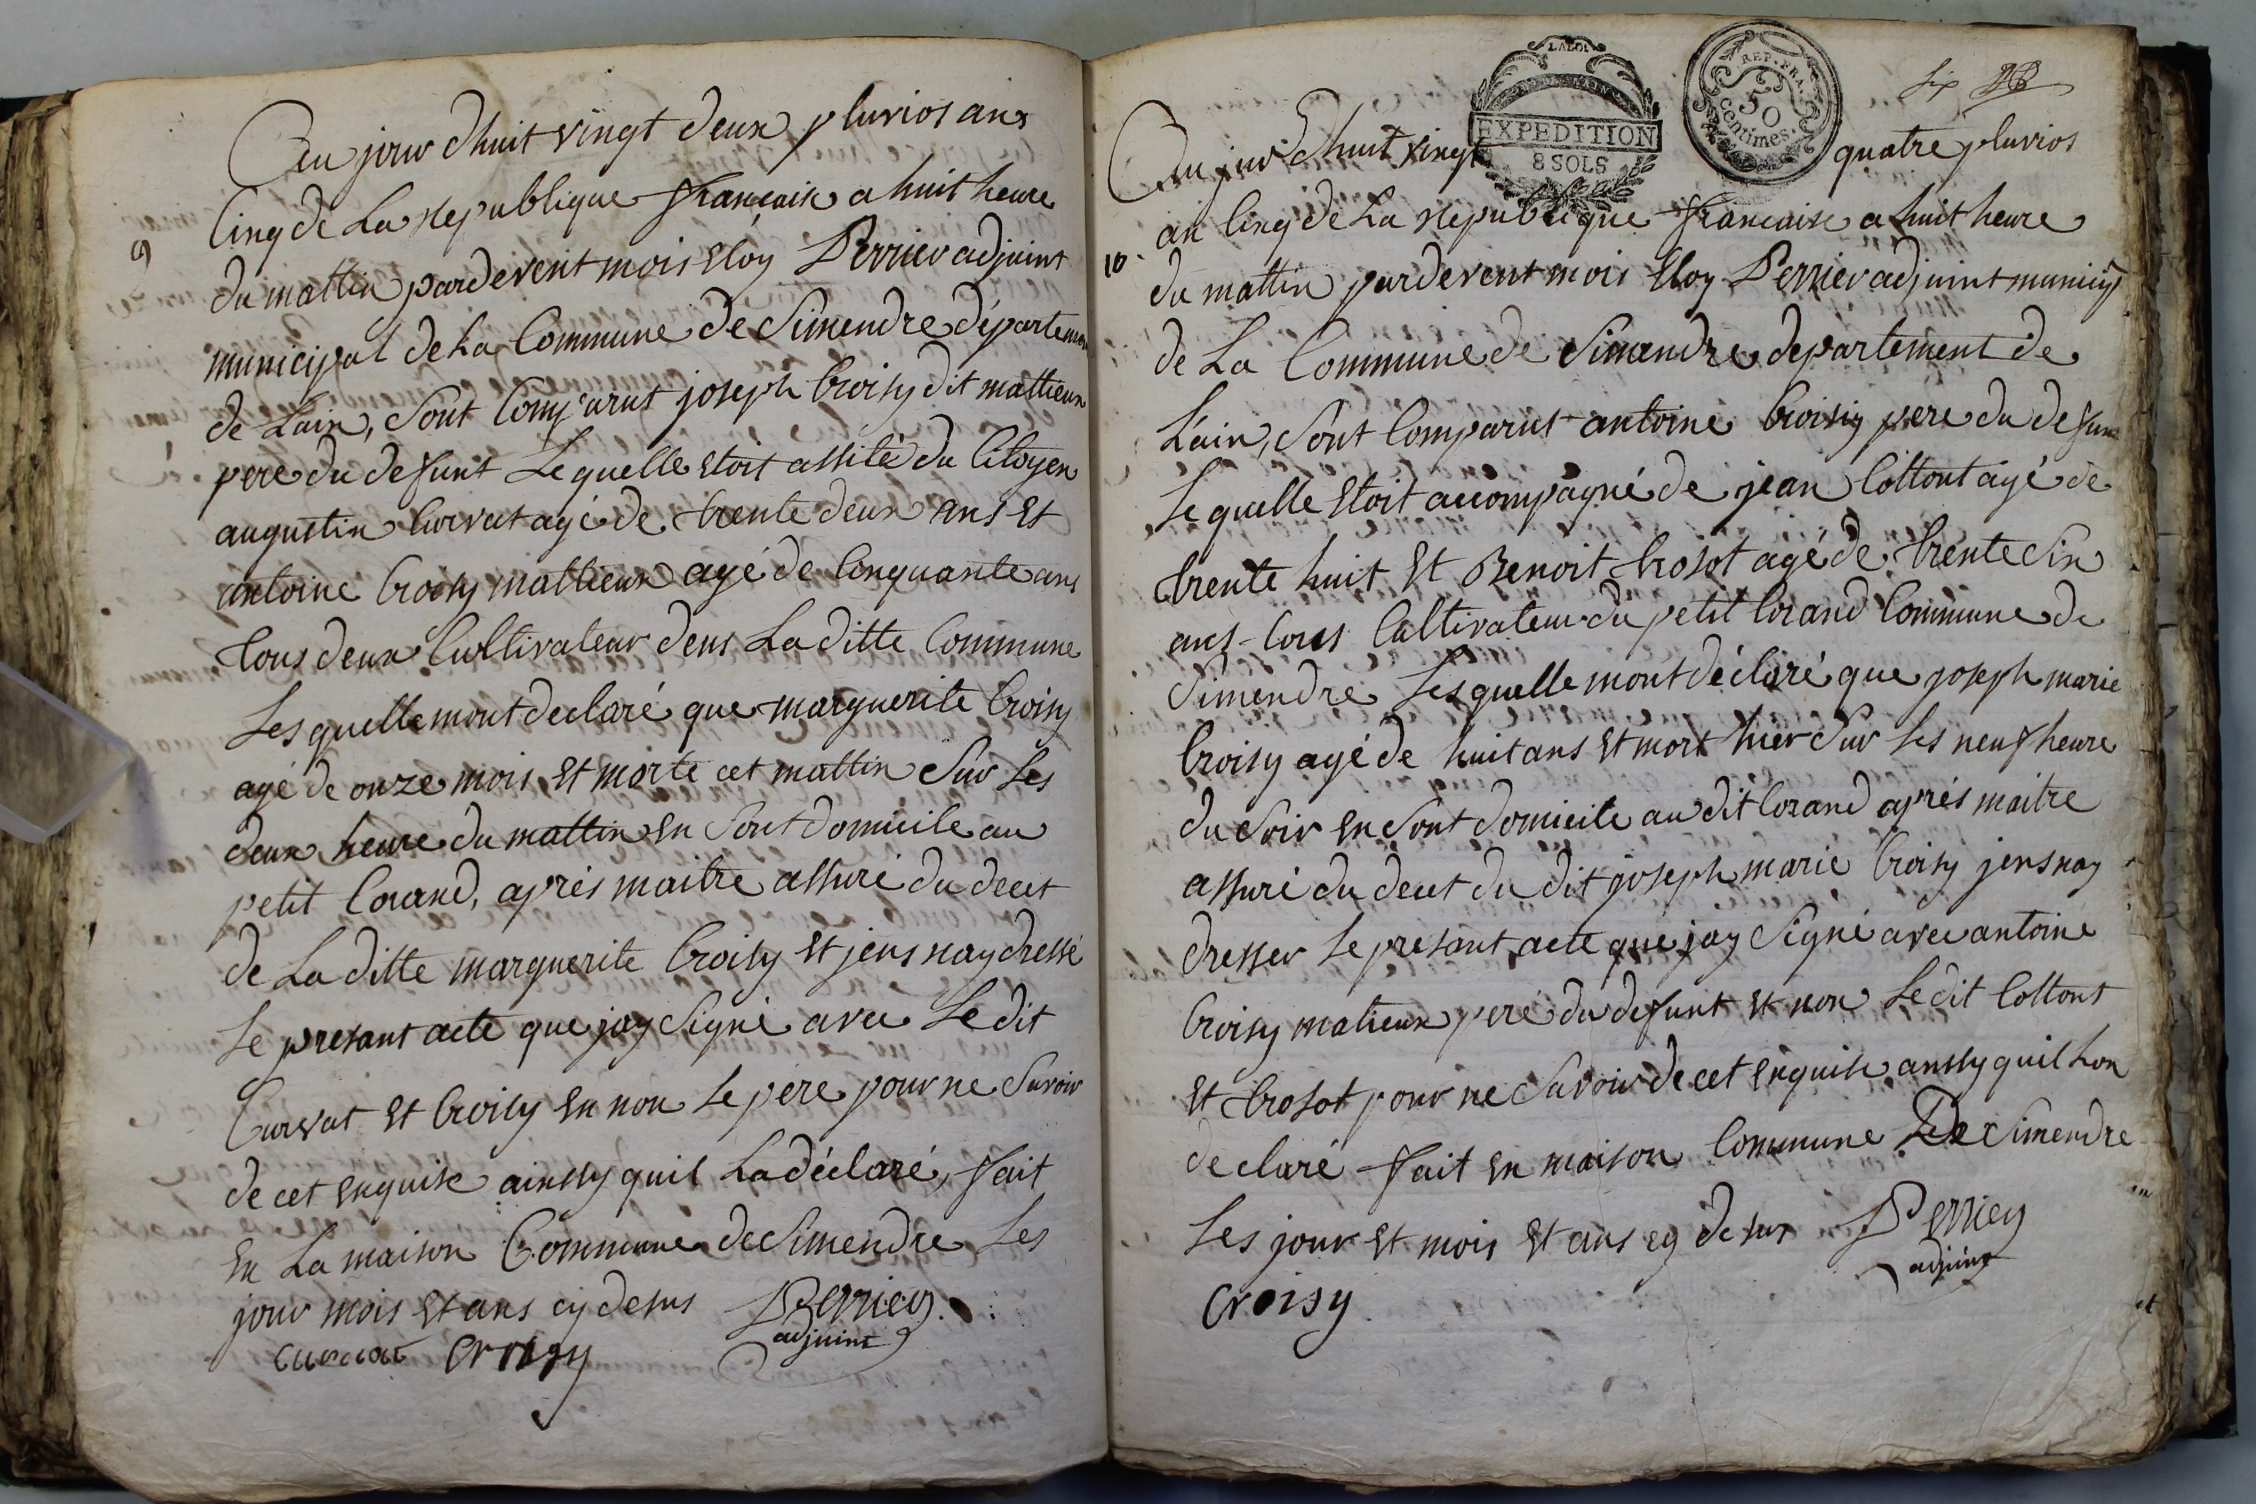 9
Au jour dhuit vingt deux pluvios ans
Cinq de La republique francaise a huit heure
du mattin pardevent mois Eloy Perrier adjoint
municipal de La Commune de Simendre départemen
de Lain, Sont Comparus joseph Croisy dit mattieux
pere du defunt Le quelle Etoit assité du Citoyen
augustin Curvat agé de trente deux ans Et
antoine Croisy mattieux agé de Cinquante ans
tous deux Cultivateur dens La ditte Commune
Lesquelle mont declaré que marguerite Croisy
agé de onze mois Et morte cet mattin Sur Les
deux heure du mattin En Sont domicile au
petit Corand, aprés maitre assuré du decet
de La ditte marguerite Croisy Et jens nay dressé
Le presant acte que jay Signé avec Le dit
Curvat Et Croisy En non Le pére pour ne Savoir
de cet Enquise ainssy quil La déclaré, fait
En La maison Commune de Simendre Les
jour mois Et ans cy desus Perrier
adjoint
curvat croisy
LA LOI
EXPEDITION
8 SOLS
REP. FRA.
50
centimes.
six
10
Au jour dhuit vingt quatre pluvios
an Cinq de La republique francaise a huit heure
du mattin pardevent mois Eloy Perrier adjoint municip
de La Commune de Simandre departement de
L'ain, Sont Comparus antoine Croisy pere du defun
Le quelle Etoit accompagné de jean Cottont agé de
trente huit Et Benoit trosot agé de trente Six
ans tous Cultivateur du petit Corand Commune de
Simendre Lesquelle mont déclaré que joseph marie
Croisy agé de huit ans Et mort hier Sur Les neuf heure
du Soir En Sont domicile au dit Corand aprés maitre
assuré du decet du dit joseph marie Croisy jens nay
dresser Le presant acte que jay Signé avec antoine
Croisy matieux pere du defunt Et non Le dit Cottont
Et trosot pour ne Savoir de cet Enquise anssy quil Lon
declaré fait En maison Commune De Simendre
Les jour Et mois Et ans cy desus Perrier
adjoint
croisy